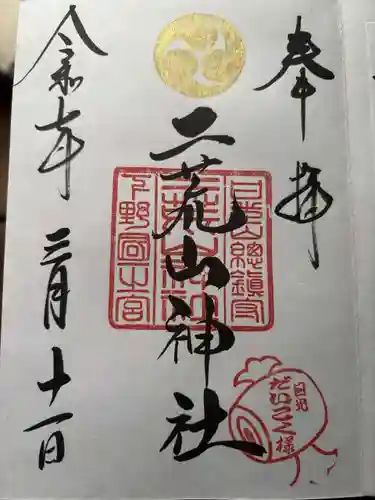 奉拝
二荒山神社
日光山総鎮守
二荒山神社
下野國一之宮
令和七年 三月十一日
日光
だいこく様